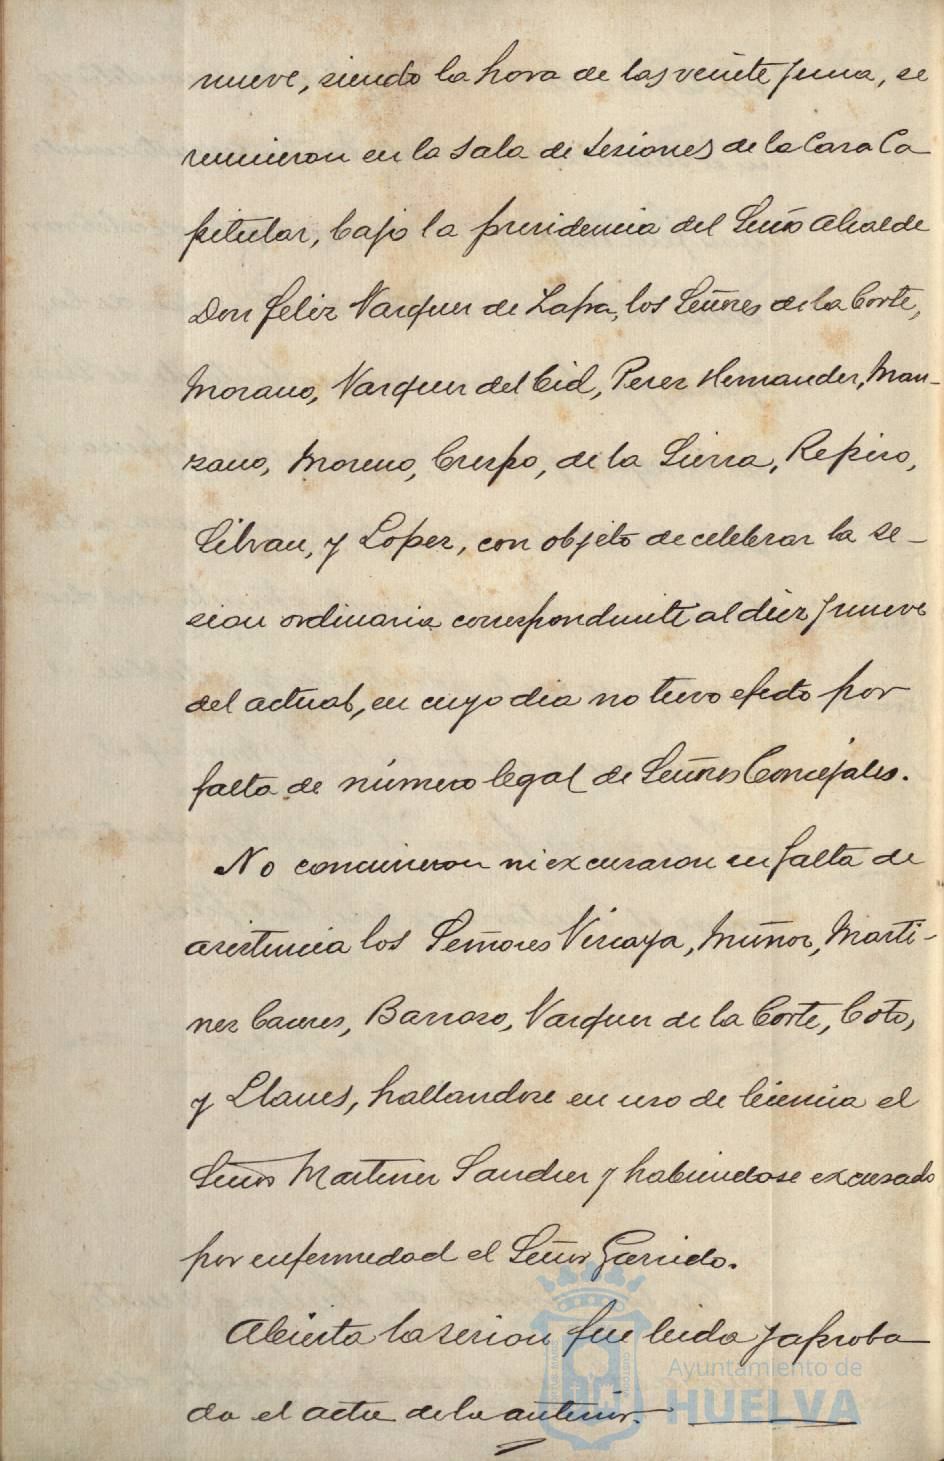 nueve, siendo la hora de las veinte y una, se
reunieron en la Sala de Sesiones de la Casa Ca
pitular, bajo la presidencia del Señor Alcalde
Don Felix Vazquez de Zafra, los Señores de la Corte,
Morano, Vazquez del Cid, Perez Hernandez, Man-
zano, Moreno, Crespo, de la Sierra, Repiso,
Silvan, y Lopez, con objeto de celebrar la se-
sion ordinaria correspondiente al diez y nueve
del actual, en cuyo dia no tuvo efecto por
falta de número legal de Señores Concejales.
No concurrieron ni excusaron su falta de
asistencia los Señores Vizcaya, Muñoz, Marti-
nez Caceres, Barroso, Vazquez de la Corte, Coto,
y Llanes, hallandose en uso de licencia el
Señor Martinez Sanchez y habiendose excusado
por enfermedad el Señor Garrido.
Abierta la sesion fue leida y aproba
da el acta de la anterior.
Ayuntamiento de
HUELVA